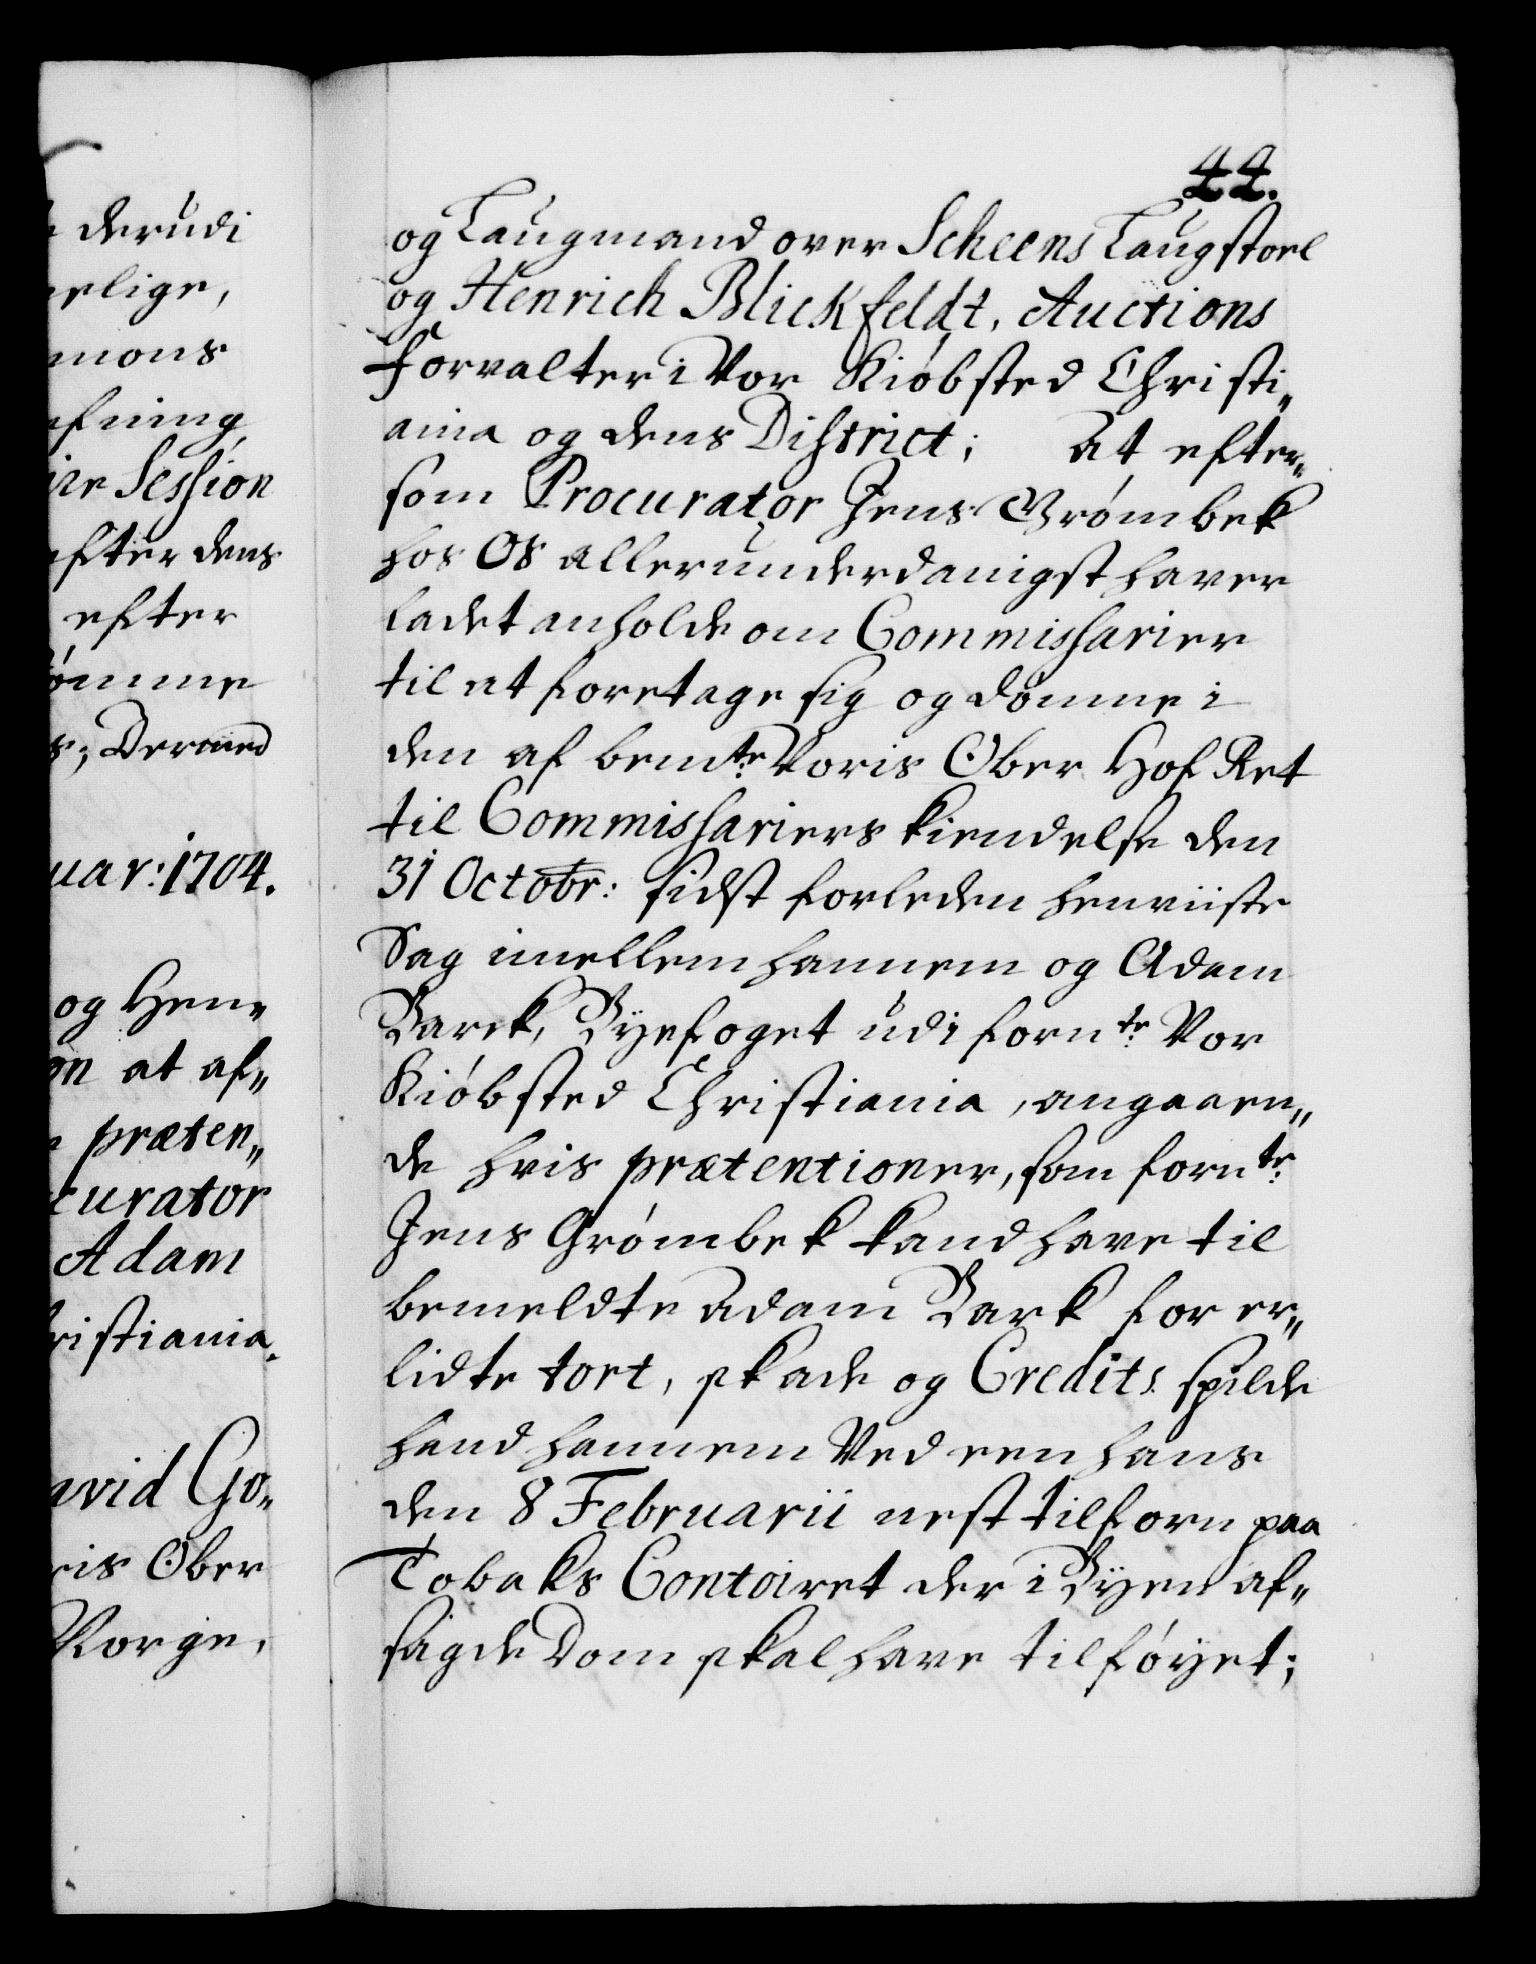 derudi
erlige,
mons
fning
ire Session
efter dens
efter
ømme
s; Dermed
uar: 1704.
og Hen„
on at af„
præten„
curator
Adam
ristiania.
avid Go„
ris Ober
Norge,
44.
og Laugmand over Scheens Laugstoel
og Henrich Blickfeldt, Auctions
Forvalter i Vor Kiøbsted Christi„
ania og dens District; At efter„
som Procurator Jens Grømbek
hos Os allerunderdanigst haver
ladet anholde om Commissarier
til at foretage sig og dømme i
den af bemte: Voris Ober Hof Ret
til Commissariers kiendelse den
31 Octobr: sidst forleden henviiste
Sag imellem hannem og Adam
Barck, Byefoget udi fornte: Vor
Kiøbsted Christiania, angaaen„
de hvis prætentioner, som fornte:
Jens Grømbek kand have til
bemeldte Adam Bark for er„
lidte tort, skade og Credits spilde
hand hannem Ved een hans
den 8 Februarii nest tilforn paa
Tobaks Contoiret der i Byen af„
sagde Dom skal have tilføyet;